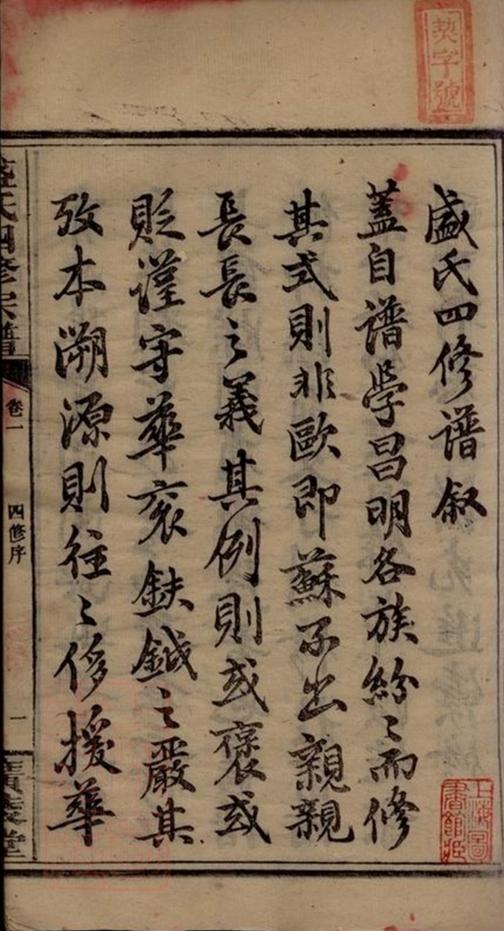 盛氏四修譜敘
蓋自譜學昌明各族紛紛而修
其式則非歐即蘇不出親親
長長之義其例則或褒或
貶謹守華袞鈇鉞之嚴其
攷本溯源則往往侈援華
盛氏四修宗譜
卷一
四修序
一
廣陵堂
焚字號
上海圖書館藏